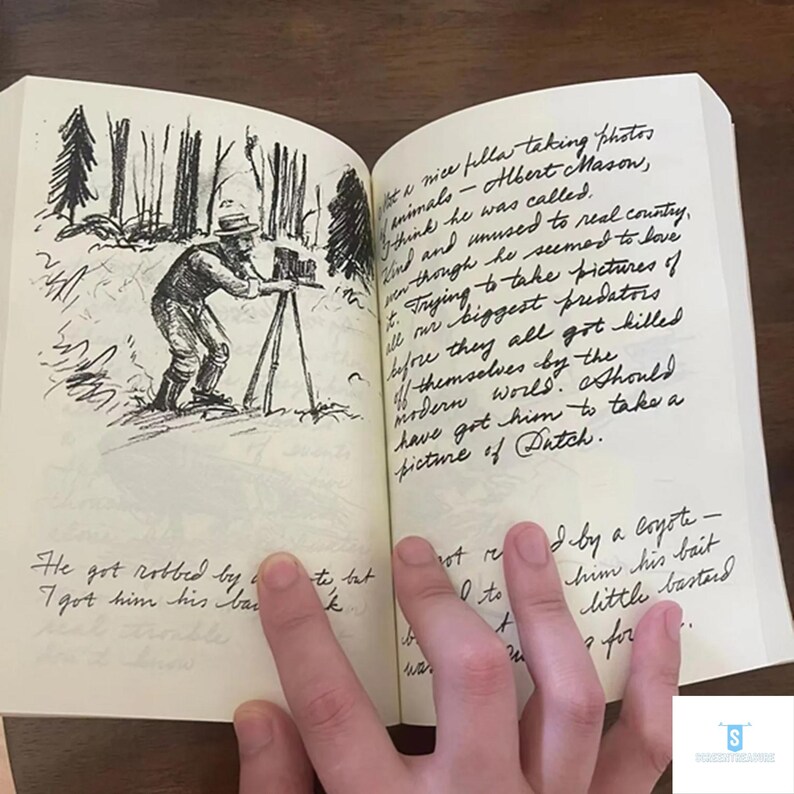 He got robbed by a but
I got him his
real trouble
don't know
Met a nice fella taking photos
of animals — Albert Mason,
I think he was called.
Kind and unused to real country,
even though he seemed to love
it. Trying to take pictures of
all our biggest predators
before they all got killed
off themselves by the
modern world. Should
have got him to take a
picture of Dutch.
got by a coyote —
to him his bait
little bastard
for
S
SCREENTREASURE